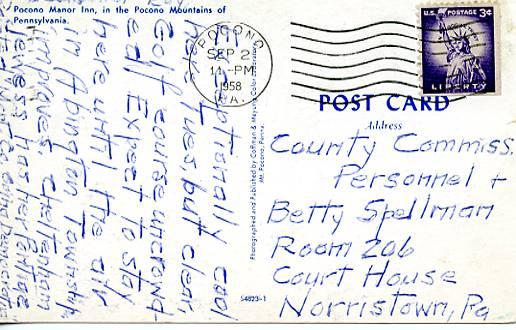 Pocono Manor Inn, in the Pocono Mountains of
Pennsylvania.
POCONO
SEP 2
11 - PM
1958
PA.
U.S. POSTAGE 3¢
LIBERTY
POST CARD
Address
County Commiss.
Personnel +
Betty Spellman
Room 206
Court House
Norristown, Pa
Photographed and Published by
Mt. Pocono, Penna.
54823-1
cool
here Tues, but clear,
Golf course uncrowd-
ed. Expect to stay
here until the air
in Abington Township
improves. Cheltenham
has her